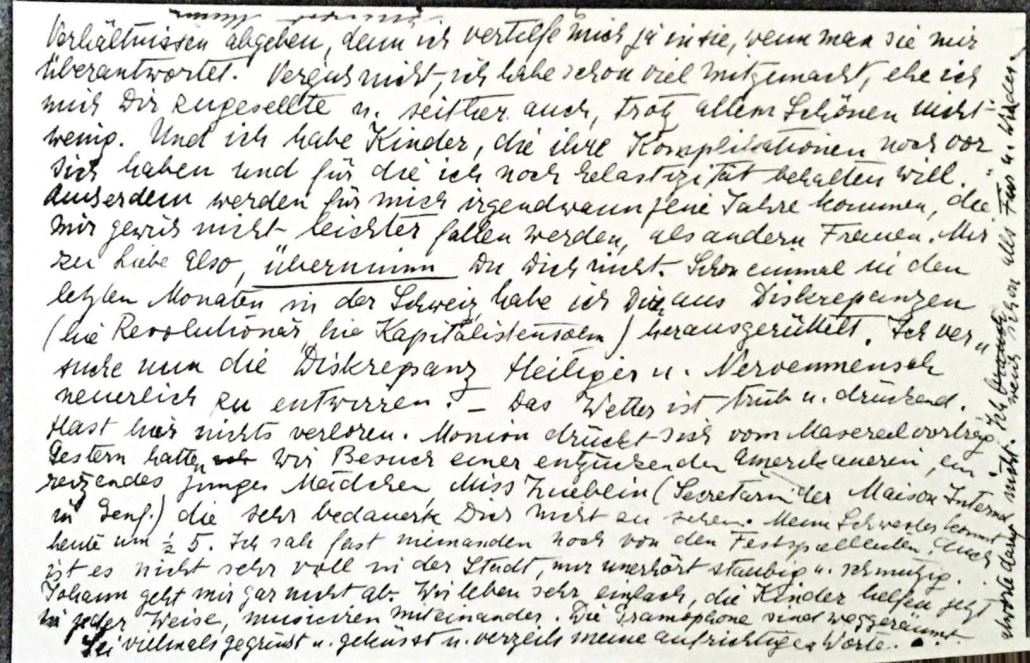 Verhältnissen abgeben, denn ich vertiefe mich ja in sie, wenn man sie mir
überantwortet. Vergiss nicht, ich habe schon viel mitgemacht, ehe ich
mich Dir zugesellte u. seither auch, trotz allem Schönen nicht
wenig. Und ich habe Kinder, die ihre Komplikationen noch vor
sich haben und für die ich noch Elastizität behalten will.
Ausserdem werden für mich irgendwann jene Jahre kommen, die
mir gewiss nicht leichter fallen werden, als andern Frauen. Mir
zu Liebe also, übernimm Du Dich nicht. Schon einmal in den
letzten Monaten in der Schweiz habe ich Dich aus Diskrepanzen
(hie Revolutionär, hie Kapitalistensohn) herausgerüttelt. Ich ver
suche nun die Diskrepanz Heiliger u. Nervenmensch
neuerlich zu entwirren. – Das Wetter ist trüb u. drückend.
Hast hier nichts verloren. Monion drückt sich vom Masereelvortrag.
Gestern hatten wir Besuch einer entzückenden Amerikanerin, ein
reizendes junges Mädchen, Miss Zueblin (Secretärin der Maison Internat
in Genf.) die sehr bedauerte Dich nicht zu sehen. Meine Schwester kommt
heute um ½ 5. Ich sah fast niemanden noch von den Festspielleuten. Auch
ist es nicht sehr voll in der Stadt, nur unerhört staubig u. schmutzig.
Johann geht mir gar nicht ab. Wir leben sehr einfach, die Kinder helfen jetzt
in jeder Weise, musiciren miteinander. Die Gramophone sind weggeräumt.
Sei vielmals gegrüsst u. geküsst u. verzeih meine aufrichtigen Worte.